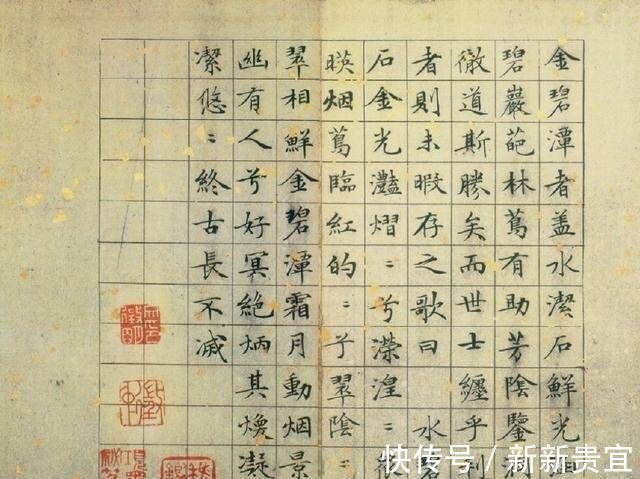 金碧潭者盖水潔石鮮光
碧巖葩林蔦有助芳陰鑒
徹道斯勝矣而世士纏乎利
者則未暇存之歌曰 水碧
石金光灧熠〻兮濴湟〻
暎烟蔦臨紅的〻兮翠陰〻
翠相鮮金碧潭霜月動烟景
幽有人兮好冥絶炳其煥凝
潔悠〻終古長不滅
快传号／新新贵宜